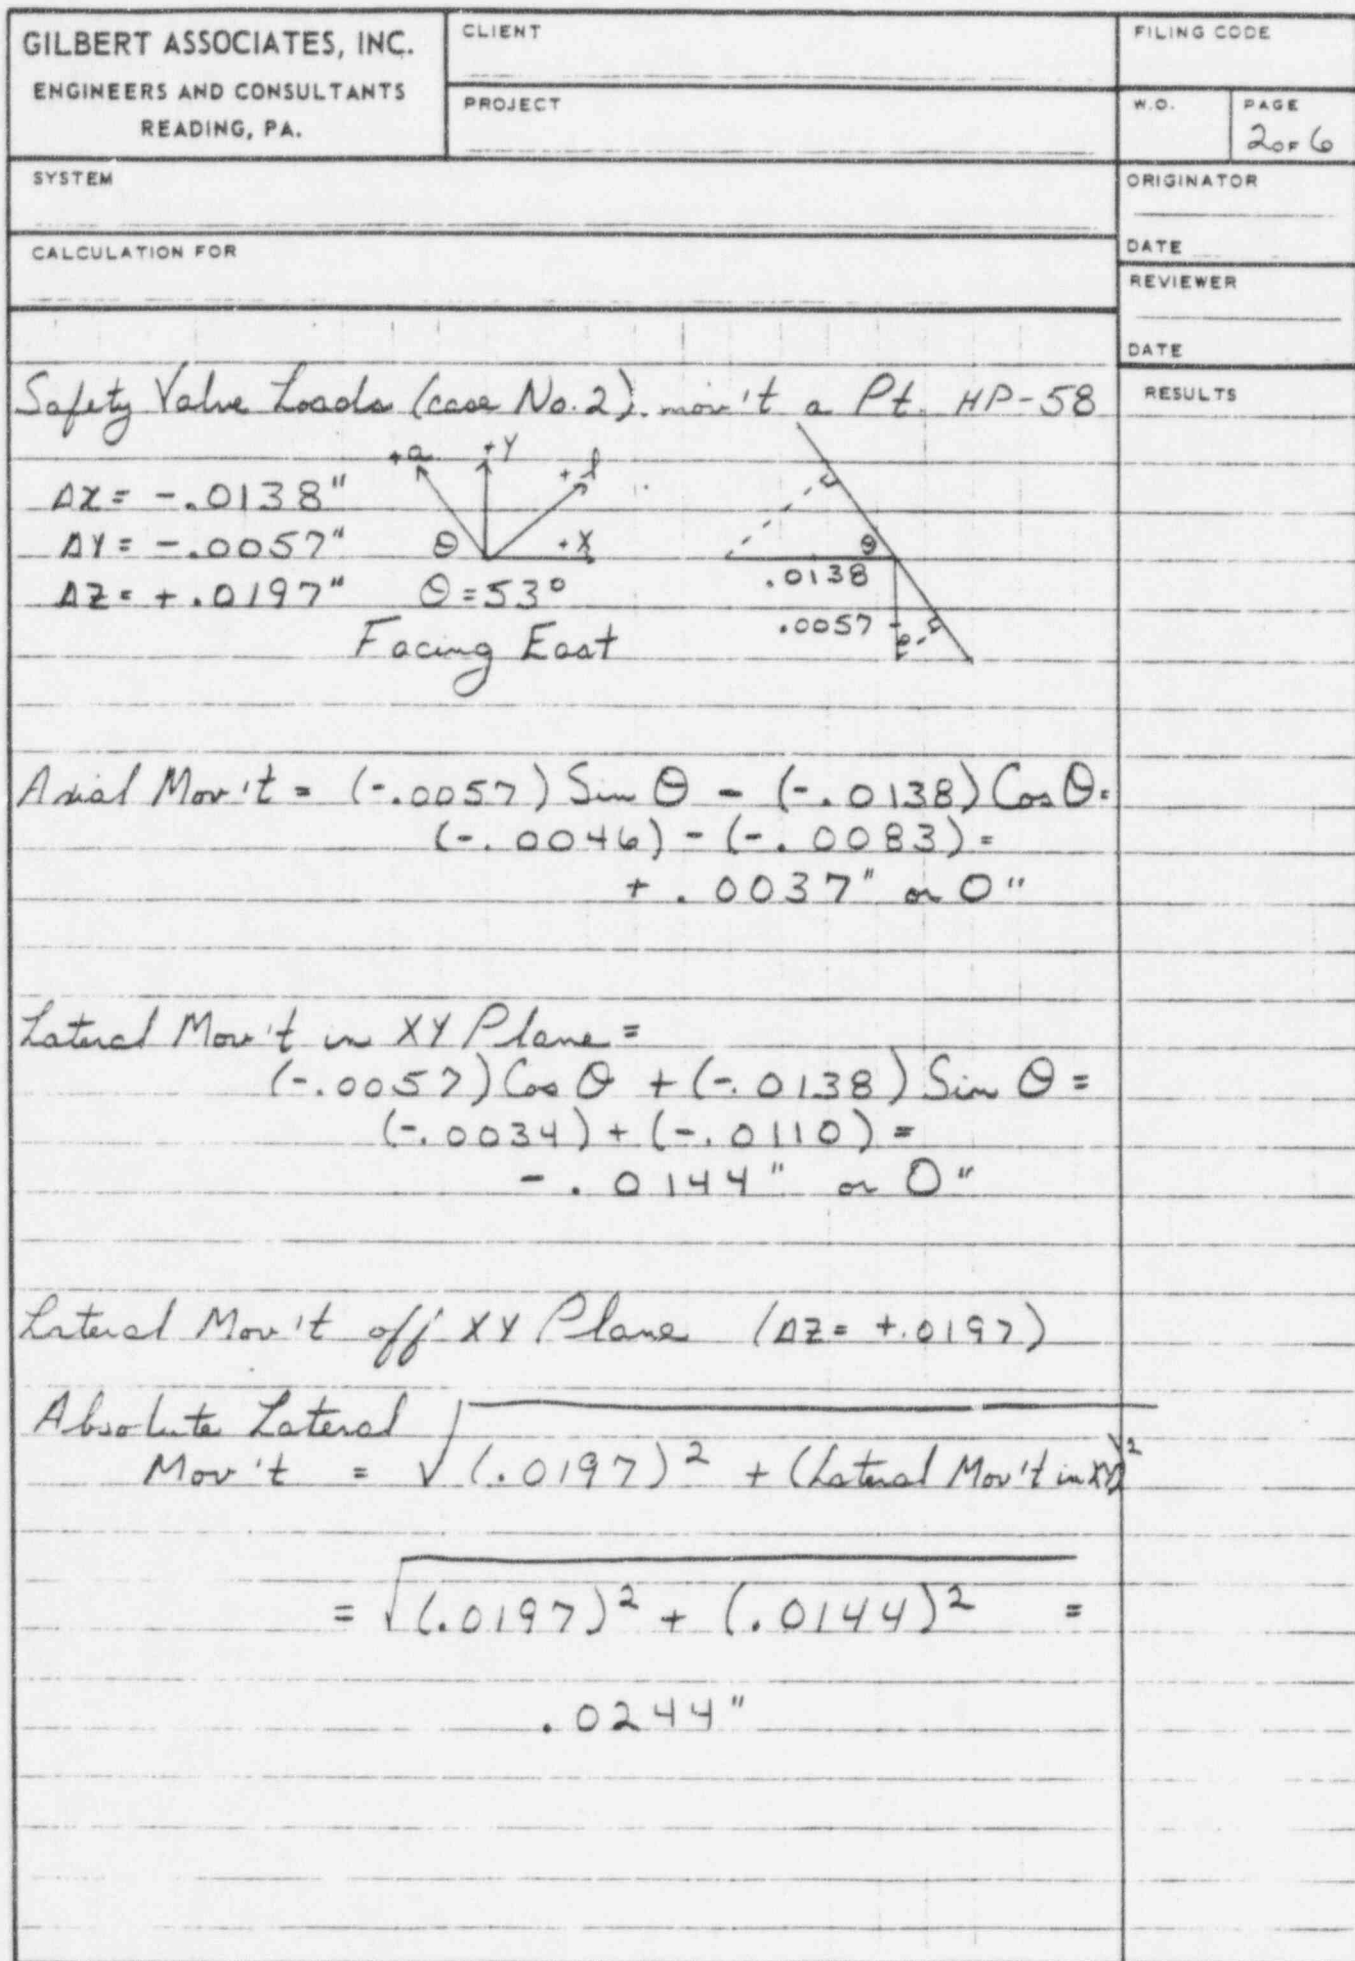 GILBERT ASSOCIATES, INC.
ENGINEERS AND CONSULTANTS
READING, PA.
CLIENT
PROJECT
FILING CODE
W.O.
PAGE
2 OF 6
SYSTEM
ORIGINATOR
CALCULATION FOR
DATE
REVIEWER
DATE
RESULTS
Safety Valve Loads (case No. 2). mov't a Pt. HP-58
ΔX = -.0138"
ΔY = -.0057"
ΔZ = +.0197"
+a
+Y
+l
θ
+X
θ = 53°
Facing East
θ
.0138
.0057
θ
Axial Mov't = (-.0057) Sin θ - (-.0138) Cos θ =
(-.0046) - (-.0083) =
+.0037" or 0"
Lateral Mov't in XY Plane =
(-.0057) Cos θ + (-.0138) Sin θ =
(-.0034) + (-.0110) =
-.0144" or 0"
Lateral Mov't off XY Plane (ΔZ = +.0197)
Absolute Lateral
Mov't = √(.0197)² + (Lateral Mov't in XY)²
= √(.0197)² + (.0144)² =
.0244"